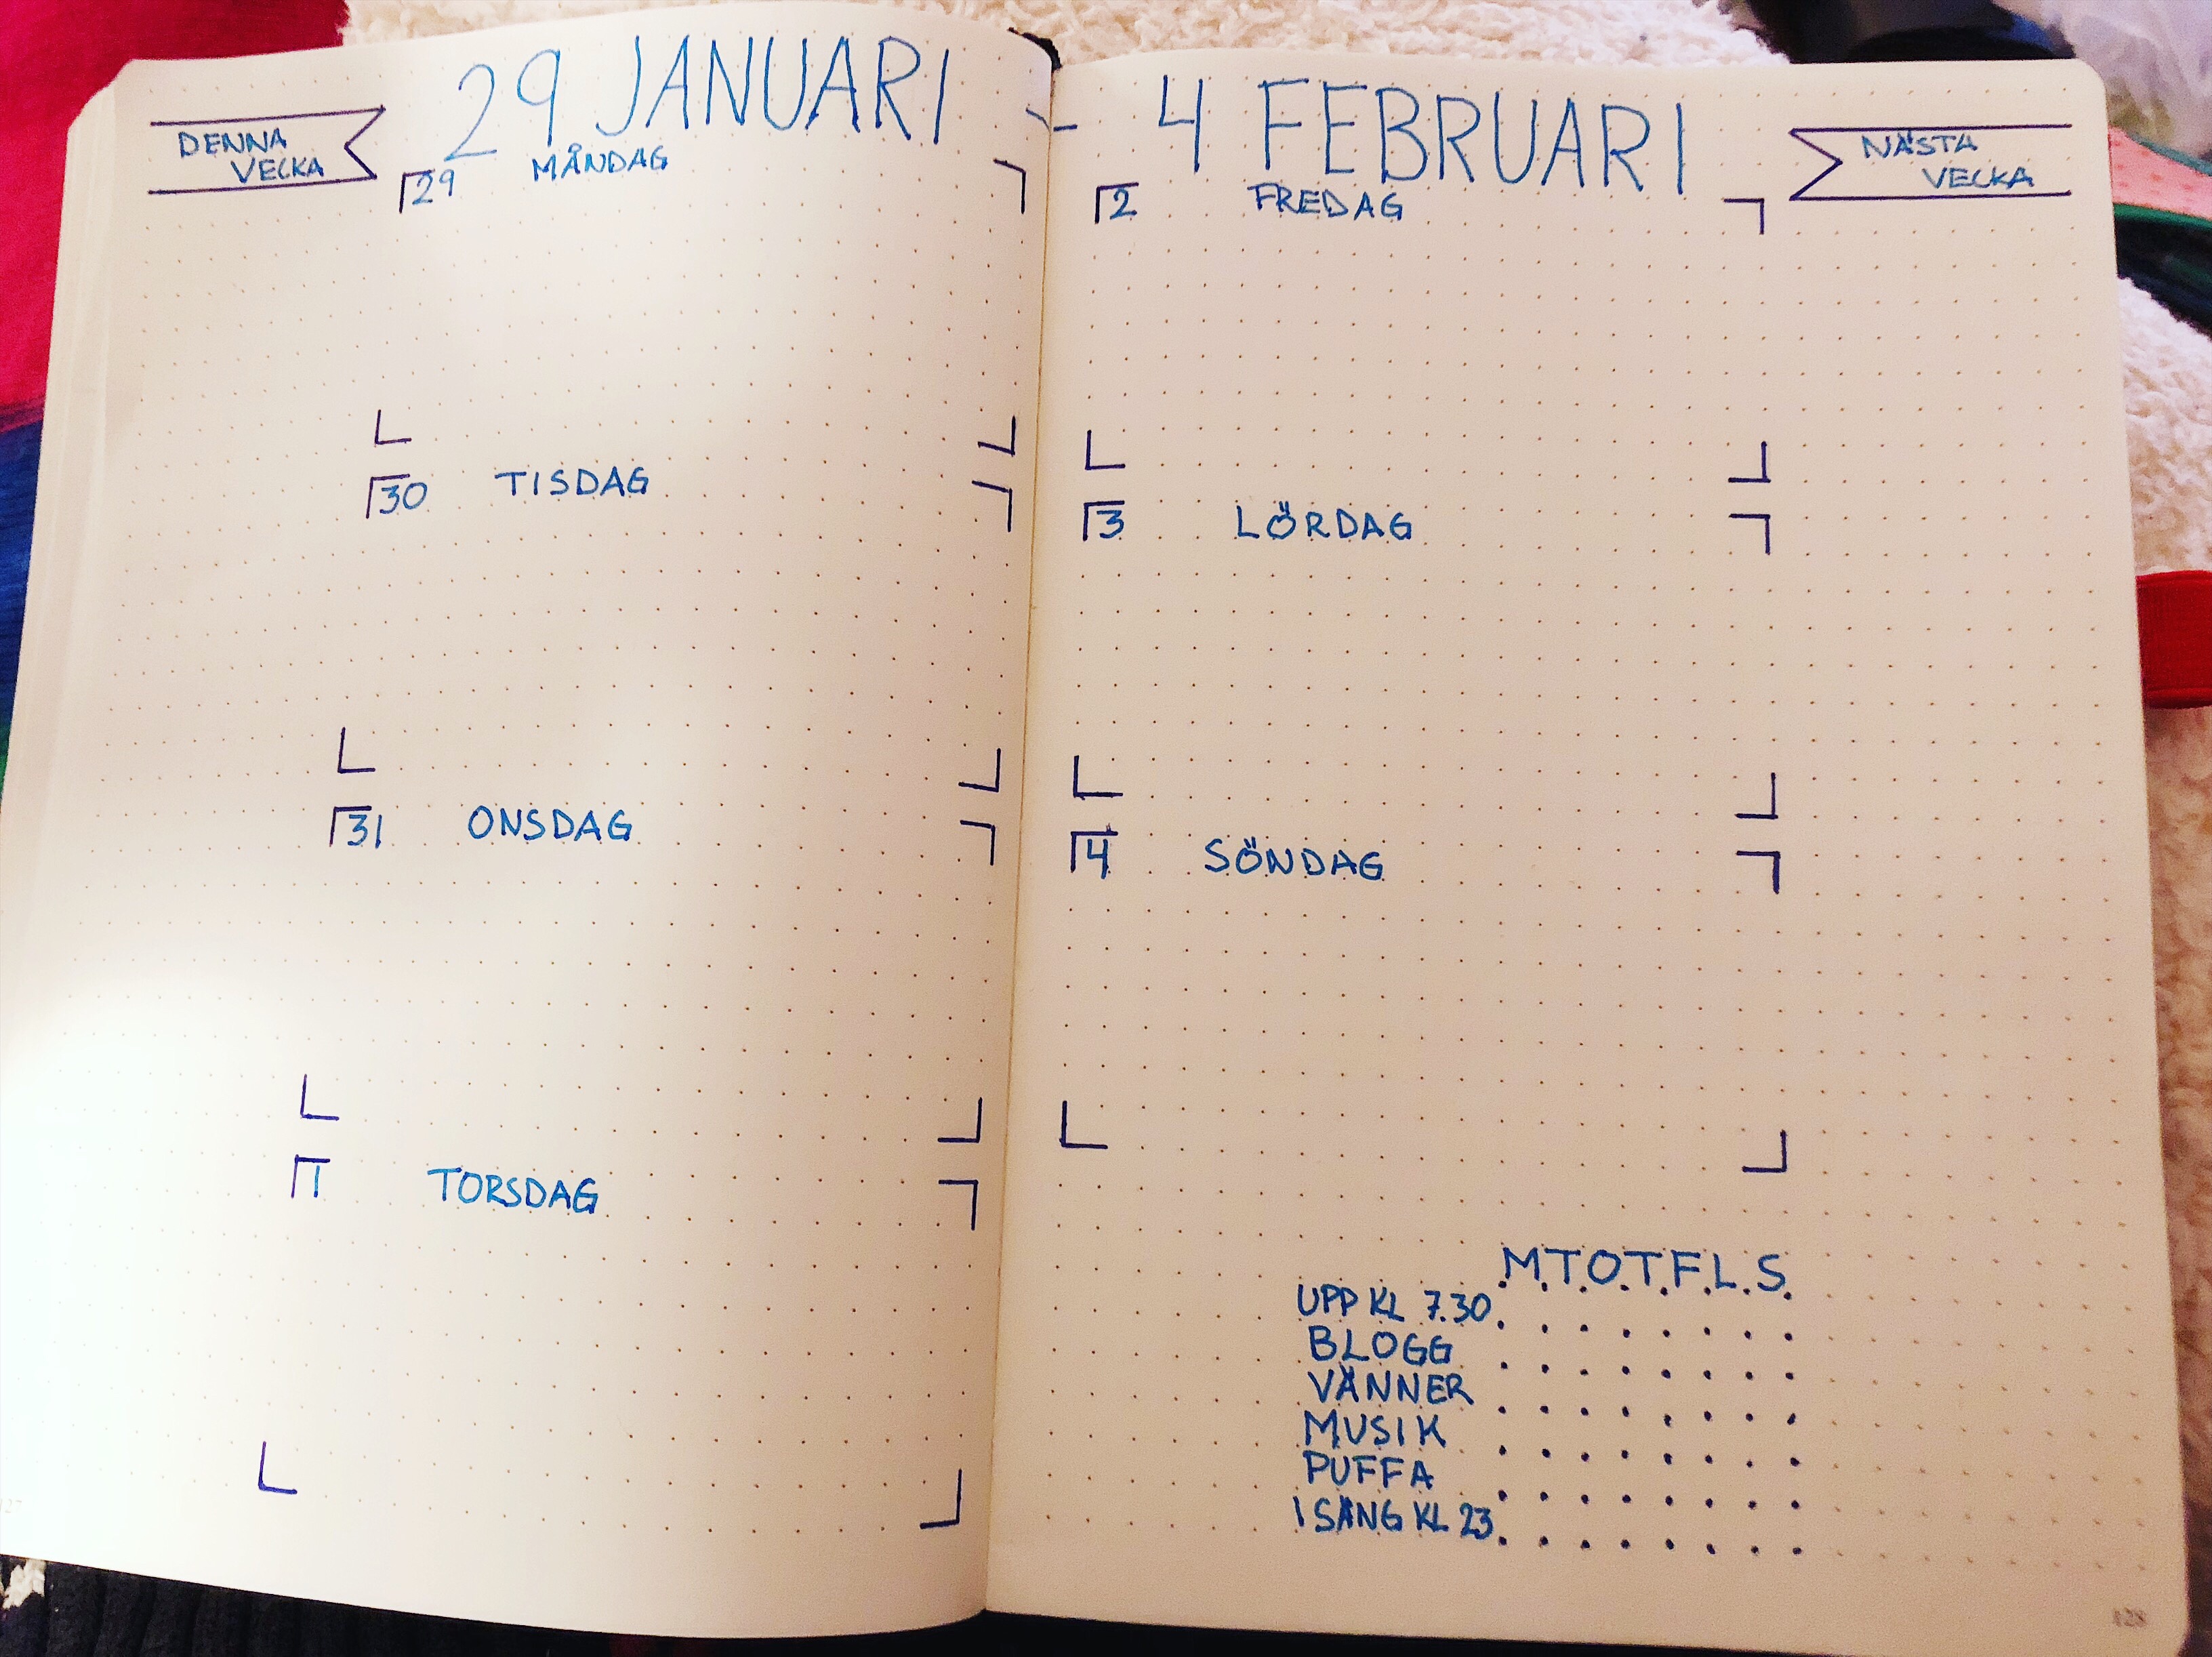 DENNA
VECKA
29 JANUARI - 4 FEBRUARI
29 MÅNDAG
30 TISDAG
31 ONSDAG
1 TORSDAG
2 FREDAG
3 LÖRDAG
4 SÖNDAG
NÄSTA
VECKA
M T O T F L S
UPP KL 7.30
BLOGG
VÄNNER
MUSIK
PUFFA
I SÄNG KL 23
128